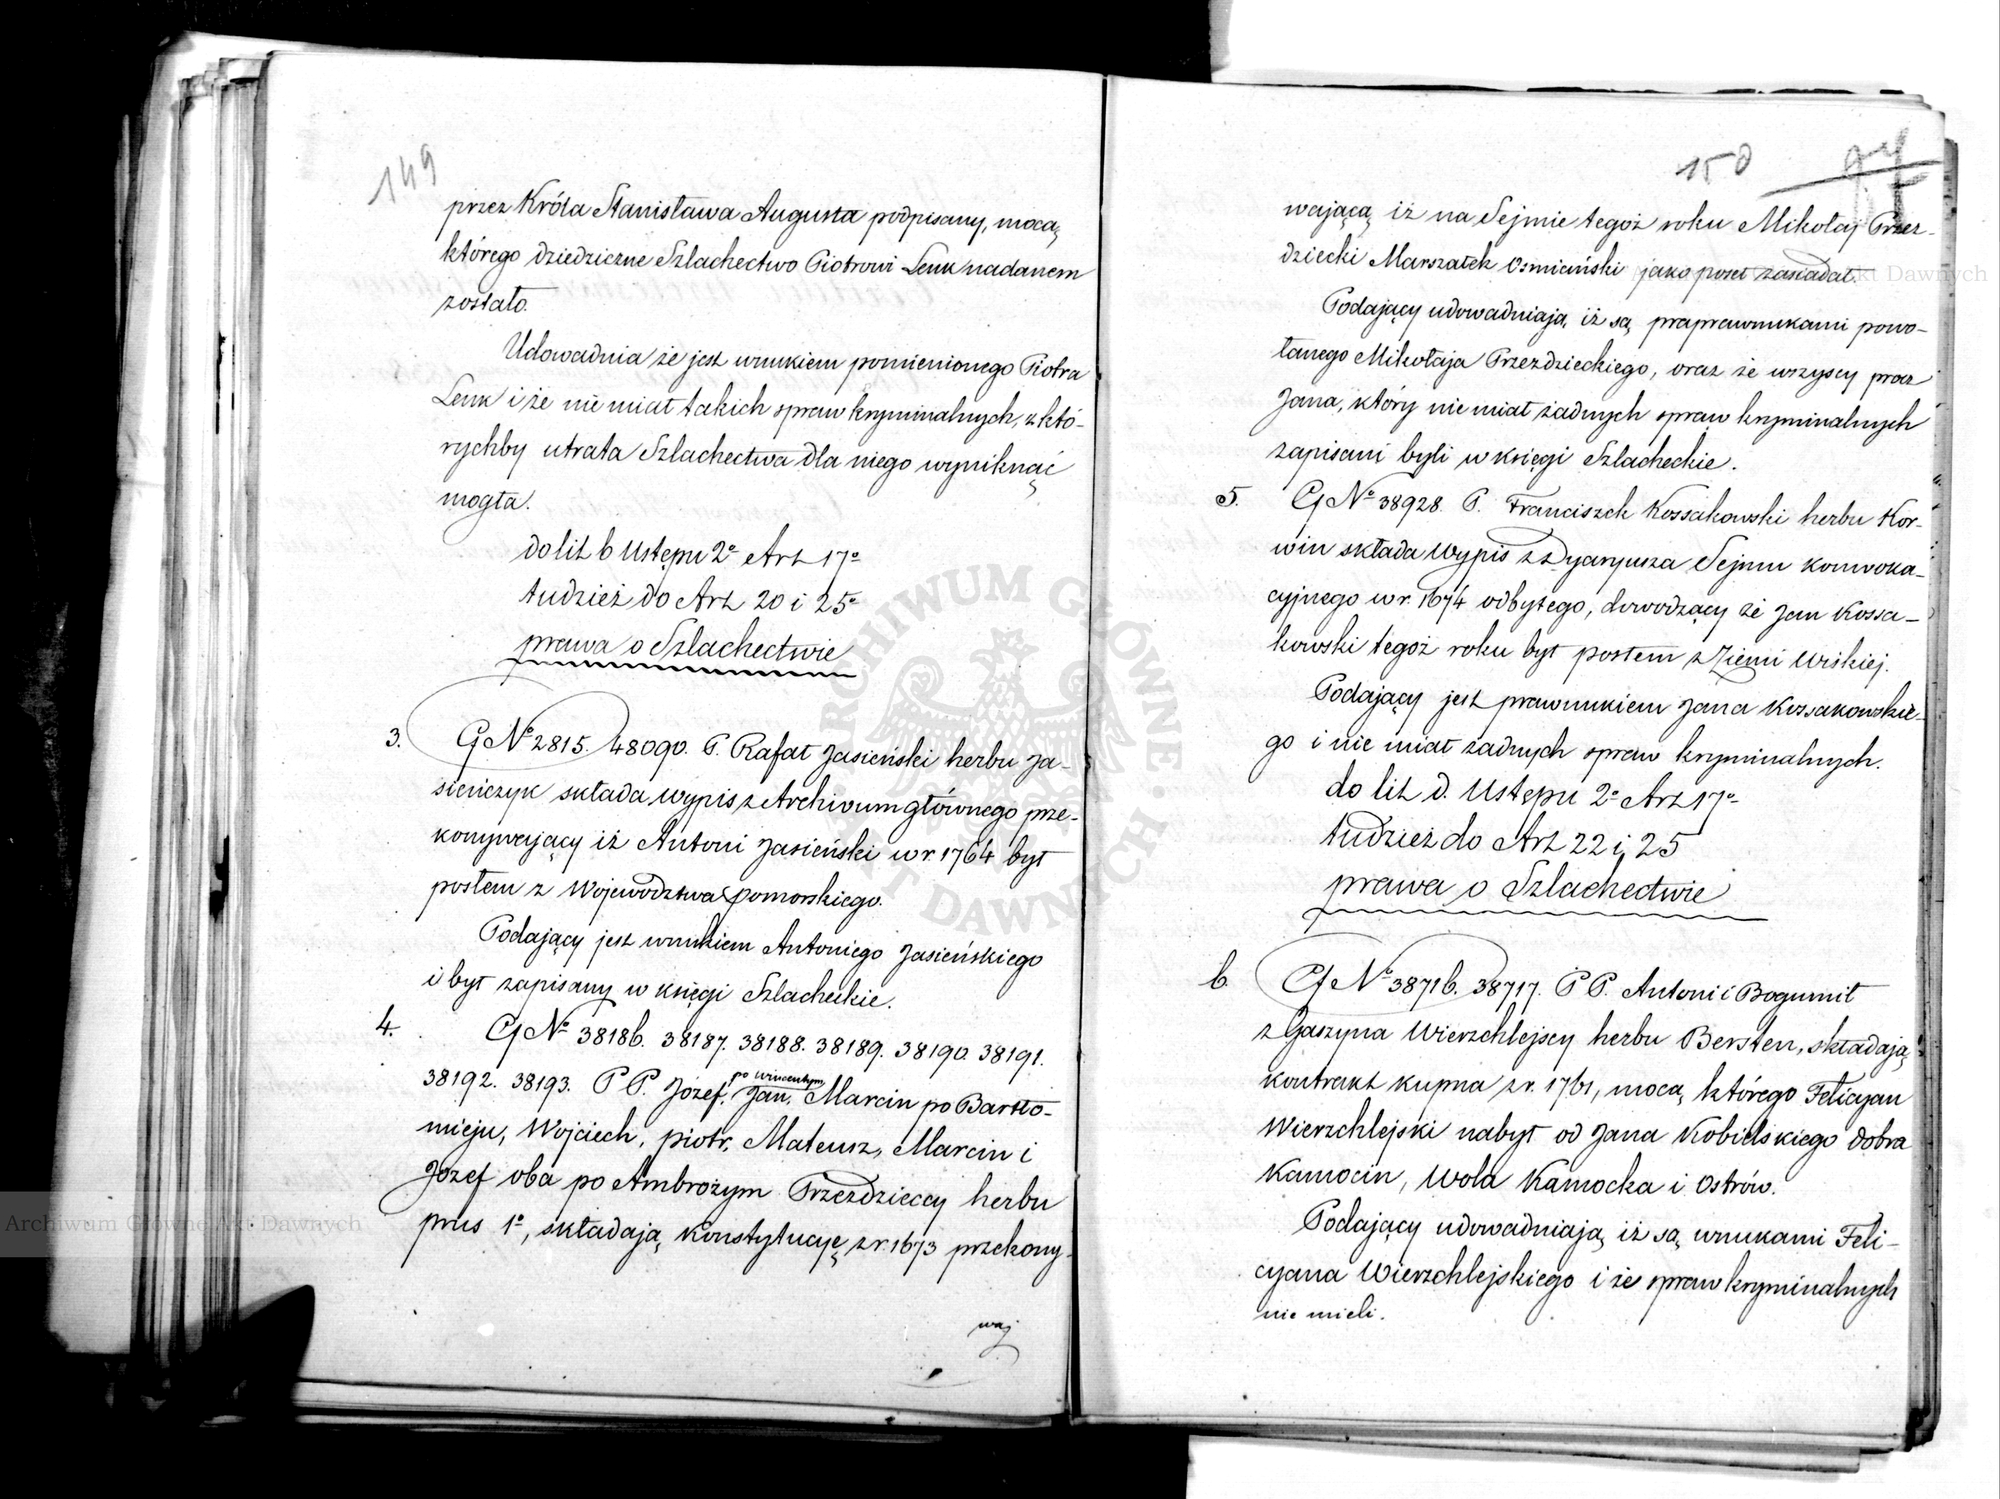 149
przez Króla Stanisława Augusta podpisany, mocą
którego dziedziczne Szlachectwo Piotrowi Lenk nadanem
zostało.
Udowadnia że jest wnukiem pomienionego Piotra
Lenk i że nie miał takich spraw kryminalnych, z któ-
rychby utrata Szlachectwa dla niego wyniknąć
mogła.
do lit b Ustępu 2º Art 17º
tudzież do Art 20 i 25º
prawa o Szlachectwie
3. G Nº 2815. 48090. P. Rafał Jasieński herbu Ja-
sieńczyk składa wypis z Archivum głównego prze-
konywający iż Antoni Jasieński w r. 1764 był
posłem z Województwa Pomorskiego.
Podający jest wnukiem Antoniego Jasieńskiego
i był zapisany w księgi Szlacheckie.
4. G Nº 38186. 38187. 38188. 38189. 38190. 38191.
38192. 38193. P P. Józef, Jan, po Wincentym, Marcin po Bartło-
mieju, Wojciech, Piotr, Mateusz, Marcin i
Józef oba po Ambrożym Przezdzieccy herbu
prus 1º, składają Konstytucyę z r. 1673 przekony-
waj
150
wającą iż na Sejmie tegoż roku Mikołaj Przez-
dziecki Marszałek Osmiański jako poseł zasiadał.
Podający udowadniają, iż są praprawnukami powo-
łanego Mikołaja Przezdzieckiego, oraz że wszyscy prócz
Jana, który nie miał żadnych spraw kryminalnych
zapisani byli w księgi Szlacheckie.
5. G Nº 38928. P. Franciszek Kossakowski herbu Kor-
win składa Wypis z Dyaryusza Sejmu konwoka-
cyjnego w r. 1674 odbytego, dowodzący że Jan Kossa-
kowski tegoż roku był posłem z Ziemi Wiskiej.
Podający jest prawnukiem Jana Kossakowskie-
go i nie miał żadnych spraw kryminalnych.
do lit d. Ustępu 2º Art 17º
tudzież do Art 22 i 25
prawa o Szlachectwie
6. G Nº 38716. 38717. P P. Antoni i Bogumił
z Gaszyna Wierzchlejscy herbu Bersten, składają
kontrakt kupna z r. 1761, mocą którego Felicyan
Wierzchlejski nabył od Jana Kobielskiego dobra
Kamocin, Wola Kamocka i Ostrów.
Podający udowadniają iż są wnukami Feli-
cyana Wierzchlejskiego i że spraw kryminalnych
nie mieli.
ARCHIWUM GŁÓWNE AKT DAWNYCH
Archiwum Główne Akt Dawnych
Akt Dawnych